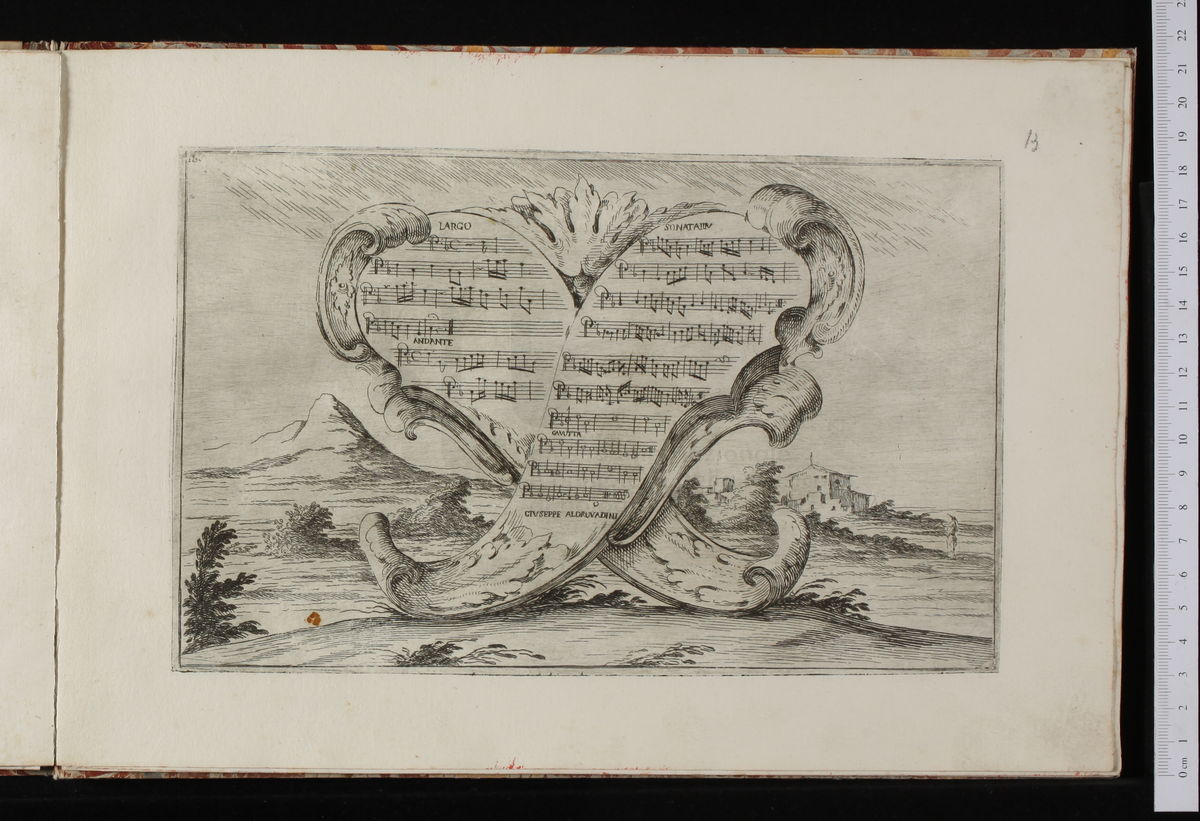 13
LARGO
ANDANTE
SONATA IIIV
GAVOTTA
GIUSEPPE ALDRUVADINI
0 cm 1 2 3 4 5 6 7 8 9 10 11 12 13 14 15 16 17 18 19 20 21 22